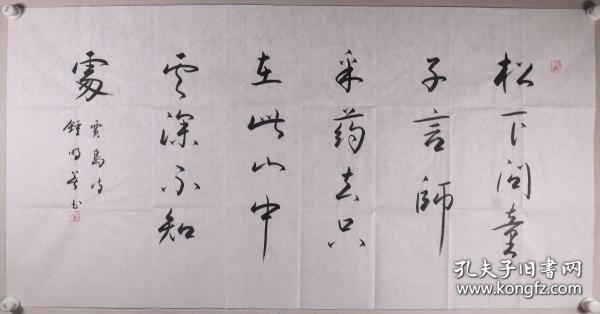 松下问童
子言師
采药去只
在此山中
云深不知
處
贾島诗
鍾明善书
孔夫子旧书网
www.kongfz.com